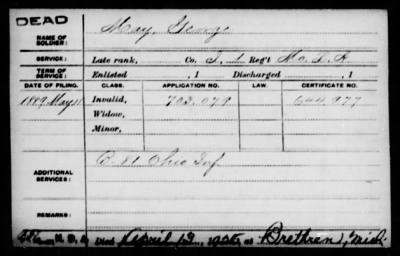 DEAD
NAME OF SOLDIER: May, George
SERVICE: Late rank, Co. I, 1 Reg't Mo. L. A.
TERM OF SERVICE: Enlisted , 1 Discharged , 1
DATE OF FILING. CLASS. APPLICATION NO. LAW. CERTIFICATE NO.
1889 May Invalid, 703,079 644,977
Widow,
Minor,
ADDITIONAL SERVICES: B. 81 Ohio Inf
REMARKS:
Died April at Brethren, Mich.